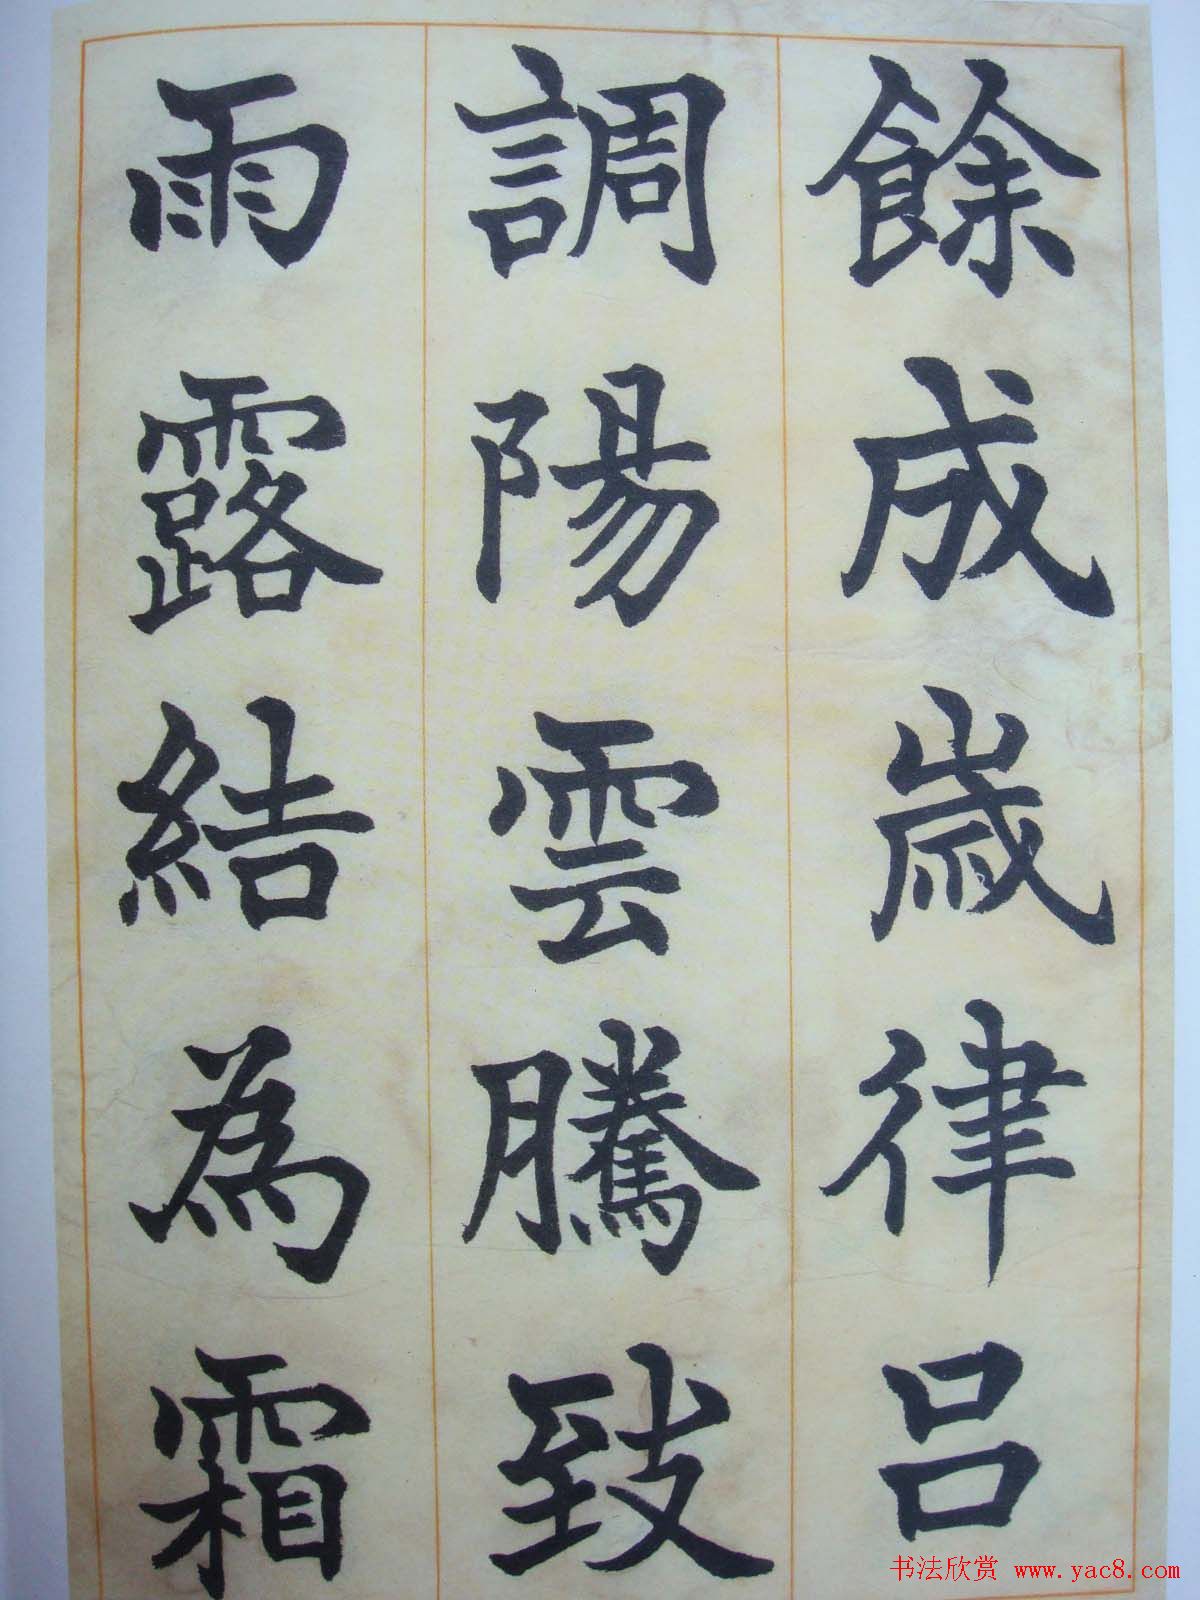 餘成歲律吕
調陽雲騰致
雨露結為霜
书法欣赏 www.yac8.com